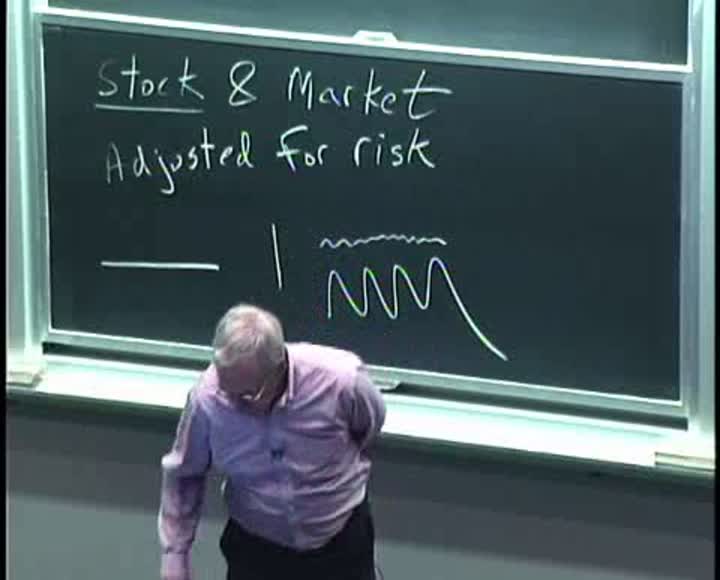 Stock & Market
Adjusted for risk